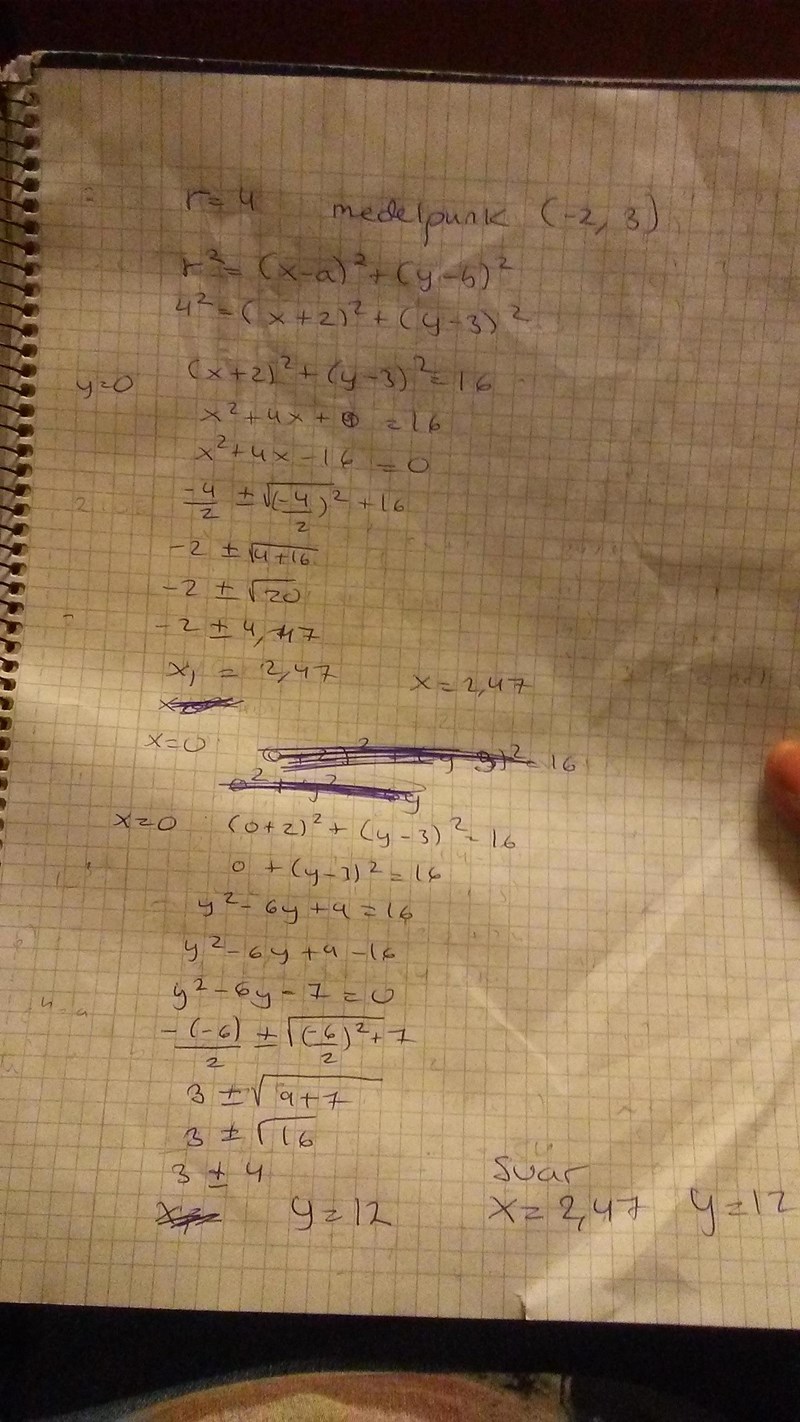 r=4 medelpunk (-2, 3)
r²=(x-a)²+(y-b)²
4²=(x+2)²+(y-3)²
y=0 (x+2)²+(y-3)²=16
x²+4x+0 =16
x²+4x-16=0
-4/2 ±√(-4/2)²+16
-2 ±√4+16
-2 ±√20
-2 ± 4,47
x₁ = 2,47 x=2,47
x=0 (0+2)²+(y-3)²=16
0²+y² 6y
x=0 (0+2)²+(y-3)²=16
0 +(y-3)²=16
y²-6y+9=16
y²-6y+9-16
y²-6y-7=0
-(-6)/2 ±√(-6/2)²+7
3 ±√9+7
3 ±√16
3 ± 4
Svar
y=12 x=2,47 y=12